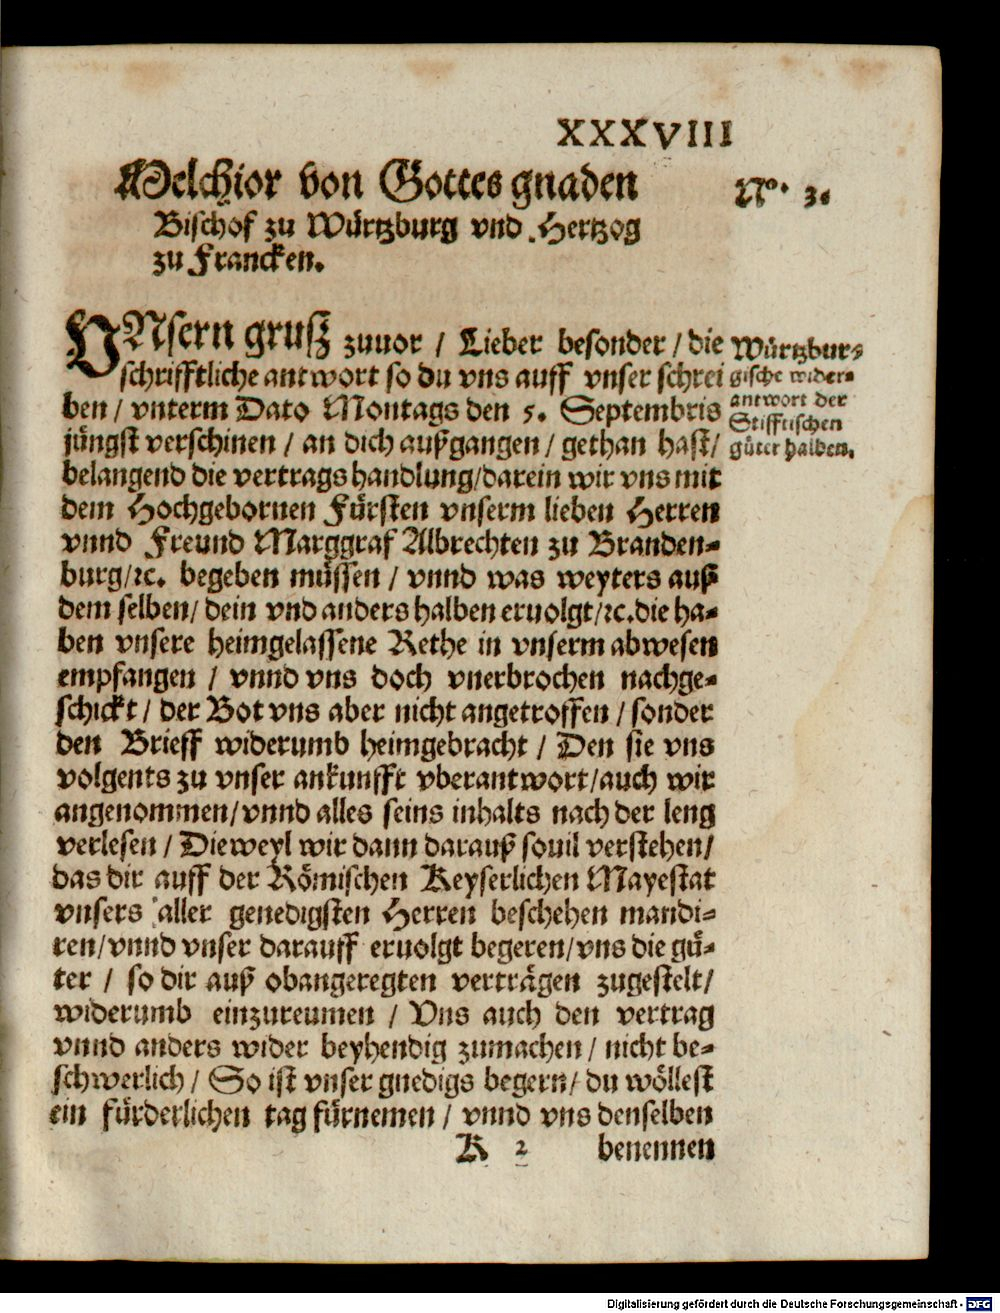 XXXVIII
Melchior von Gottes gnaden
No. 3.
Bischof zu Würtzburg vnd Hertzog
zu Francken.
VNsern gruß zuuor / Lieber besonder / die
schrifftliche antwort so du vns auff vnser schrei
ben / vnterm Dato Montags den 5. Septembris
jüngst verschinen / an dich außgangen / gethan hast /
belangend die vertrags handlung / darein wir vns mit
dem Hochgebornen Fürsten vnserm lieben Herren
vnnd Freund Marggraf Albrechten zu Branden-
burg / ꝛc. begeben müssen / vnnd was weyters auß
dem selben / dein vnd anders halben eruolgt / ꝛc. die ha-
ben vnsere heimgelassene Rethe in vnserm abwesen
empfangen / vnnd vns doch vnerbrochen nachge-
schickt / der Bot vns aber nicht angetroffen / sonder
den Brieff widerumb heimgebracht / Den sie vns
volgents zu vnser ankunfft vberantwort / auch wir
angenommen / vnnd alles seins inhalts nach der leng
verlesen / Dieweyl wir dann darauß souil verstehen /
das dir auff der Römischen Keyserlichen Mayestat
vnsers aller genedigsten Herren beschehen mandi-
ren / vnnd vnser darauff eruolgt begeren / vns die gü-
ter / so dir auß obangeregten verträgen zugestelt /
widerumb einzureumen / Vns auch den vertrag
vnnd anders wider beyhendig zumachen / nicht be-
schwerlich / So ist vnser gnedigs begern / du wöllest
ein fürderlichen tag fürnemen / vnnd vns denselben
K 2 benennen
Würtzbur-
gische wider-
antwort der
Stifftischen
güter halben.
Digitalisierung gefördert durch die Deutsche Forschungsgemeinschaft - DFG